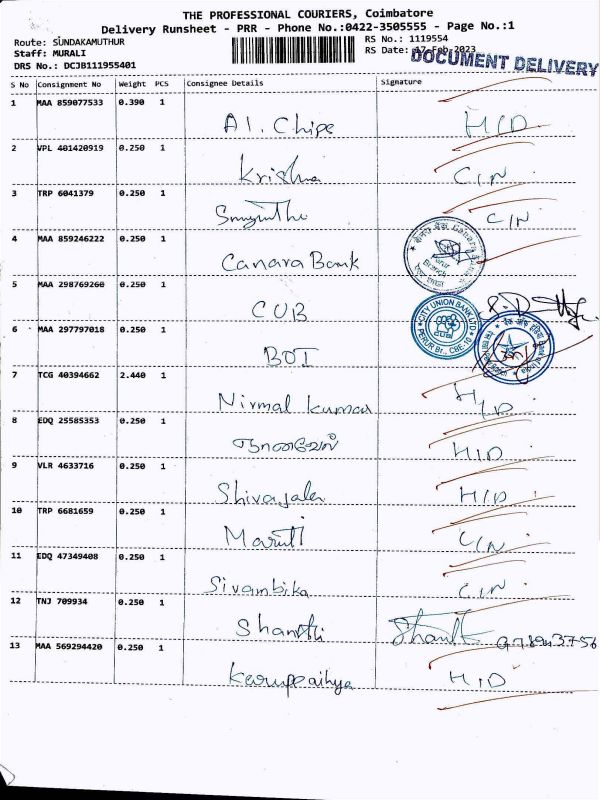 THE PROFESSIONAL COURIERS, Coimbatore
Delivery Runsheet - PRR - Phone No.:0422-3505555 - Page No.:1
Route: SUNDAKAMUTHUR
RS No.: 1119554
Staff: MURALI
RS Date: 17-Feb-2023
DOCUMENT DELIVERY
DRS No.: DCJB111955401
S No Consignment No Weight PCS Consignee Details Signature
1 MAA 859077533 0.390 1
A1. Chipe H/D
2 VPL 401420919 0.250 1
Krishna C/N
3 TRP 6041379 0.250 1
C/N
4 MAA 859246222 0.250 1
Canara Bank
5 MAA 298769260 0.250 1
CUB
CITY UNION BANK LTD
PERUR Br., CBE-10
6 MAA 297797018 0.250 1
BOI
7 TCG 40394662 2.440 1
Nirmal kumar H/D
8 EDQ 25585353 0.250 1
H/D
9 VLR 4633716 0.250 1
Shivajale H/D
10 TRP 6681659 0.250 1
Maruti C/N
11 EDQ 47349408 0.250 1
Sivambika C/N
12 TNJ 709934 0.250 1
Shanthi
13 MAA 569294420 0.250 1
Karuppaihya H/D